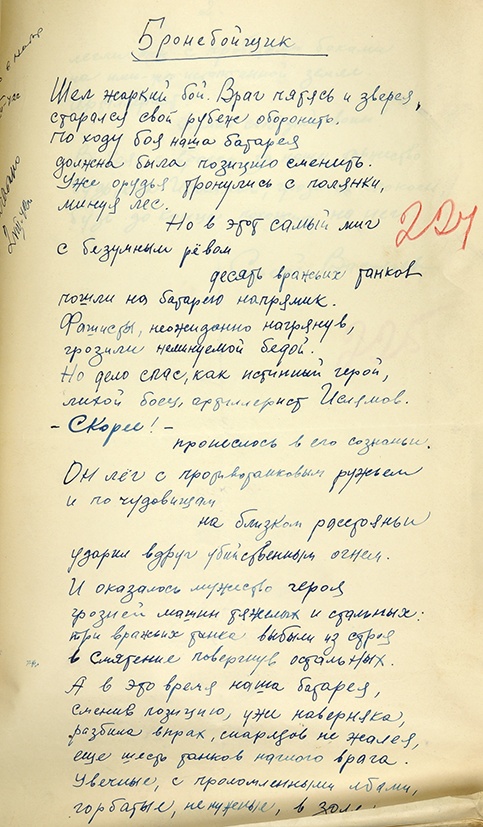 Бронебойщик
Шел жаркий бой. Враг пятясь и зверея,
старался свой рубеж оборонить.
По ходу боя наша батарея
должна была позицию сменить.
Уже орудья тронулись с полянки,
минуя лес.
Но в этот самый миг
224
с безумным рёвом
десять вражьих танков
пошли на батарею напрямик.
Фашисты, неожиданно нагрянув,
грозили неминуемой бедой.
Но дело спас, как истинный герой,
лихой боец, артиллерист Ислямов.
- Скорее! -
пронеслось в его сознаньи.
Он лёг с противотанковым ружьем
и по чудовищам
на близком расстояньи
ударил вдруг убийственным огнем.
И оказалось мужество героя
грозней машин тяжелых и стальных:
три вражьих танка выбыли из строя
в смятение повергнув остальных.
А в это время наша батарея,
сменив позицию, уже наверняка,
разбила впрах, снарядов не жалея,
еще шесть танков наглого врага.
Увечные, с проломленными лбами,
горбатые, ненужные, в